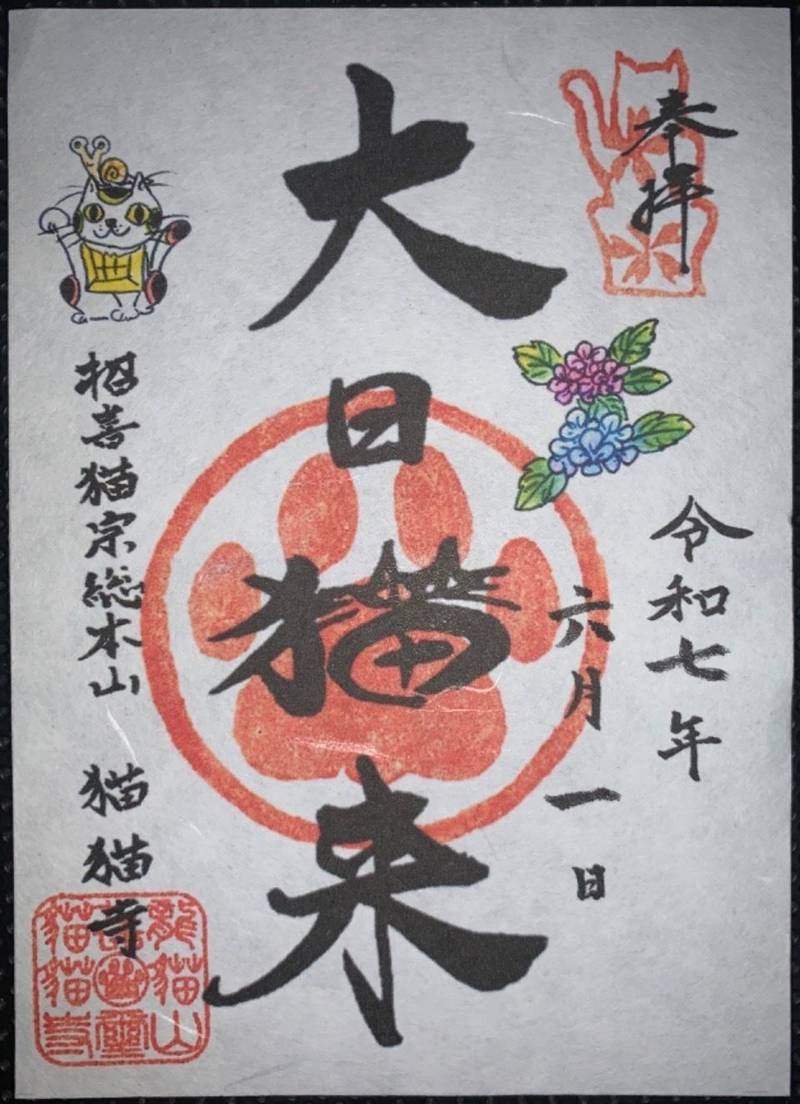 奉拝
令和七年
六月一日
大日猫来
招喜猫宗総本山　猫猫寺
龍貓山
貓貓寺